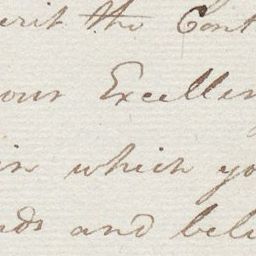 erit the Cont
our Excellen
in which yo
nds and beli